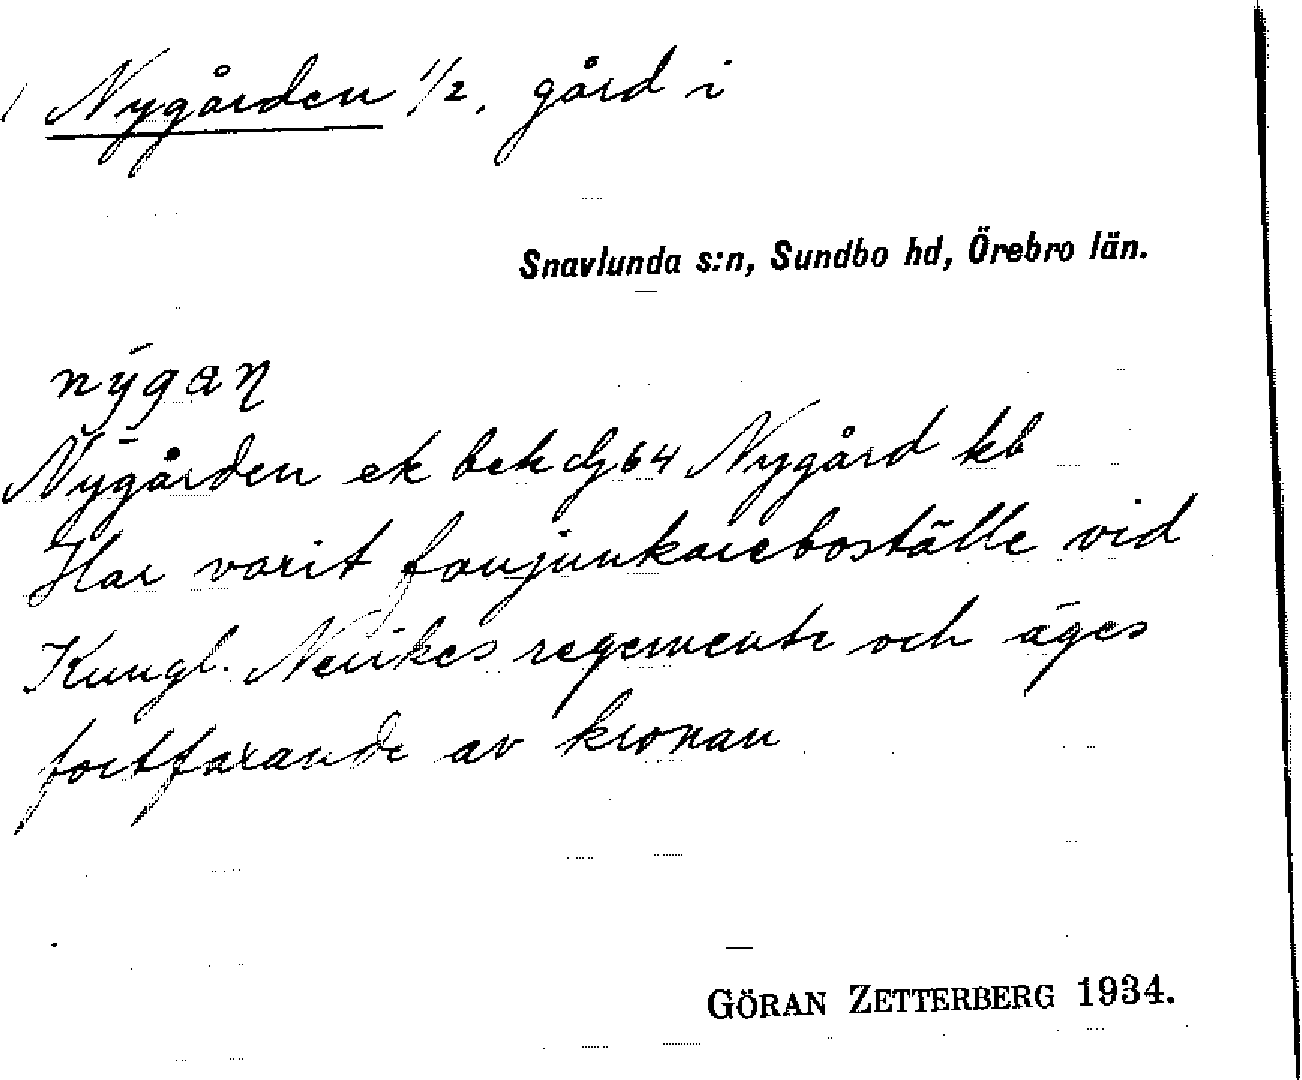 Nygården 1/2, gård i
Snavlunda s:n, Sundbo hd, Örebro län.
nýgaɳ
Nygården ek bek G64 Nygård kb
Har varit fanjunkareboställe vid
Kungl. Nerikes regemente och äges
fortfarande av kronan
GÖRAN ZETTERBERG 1934.